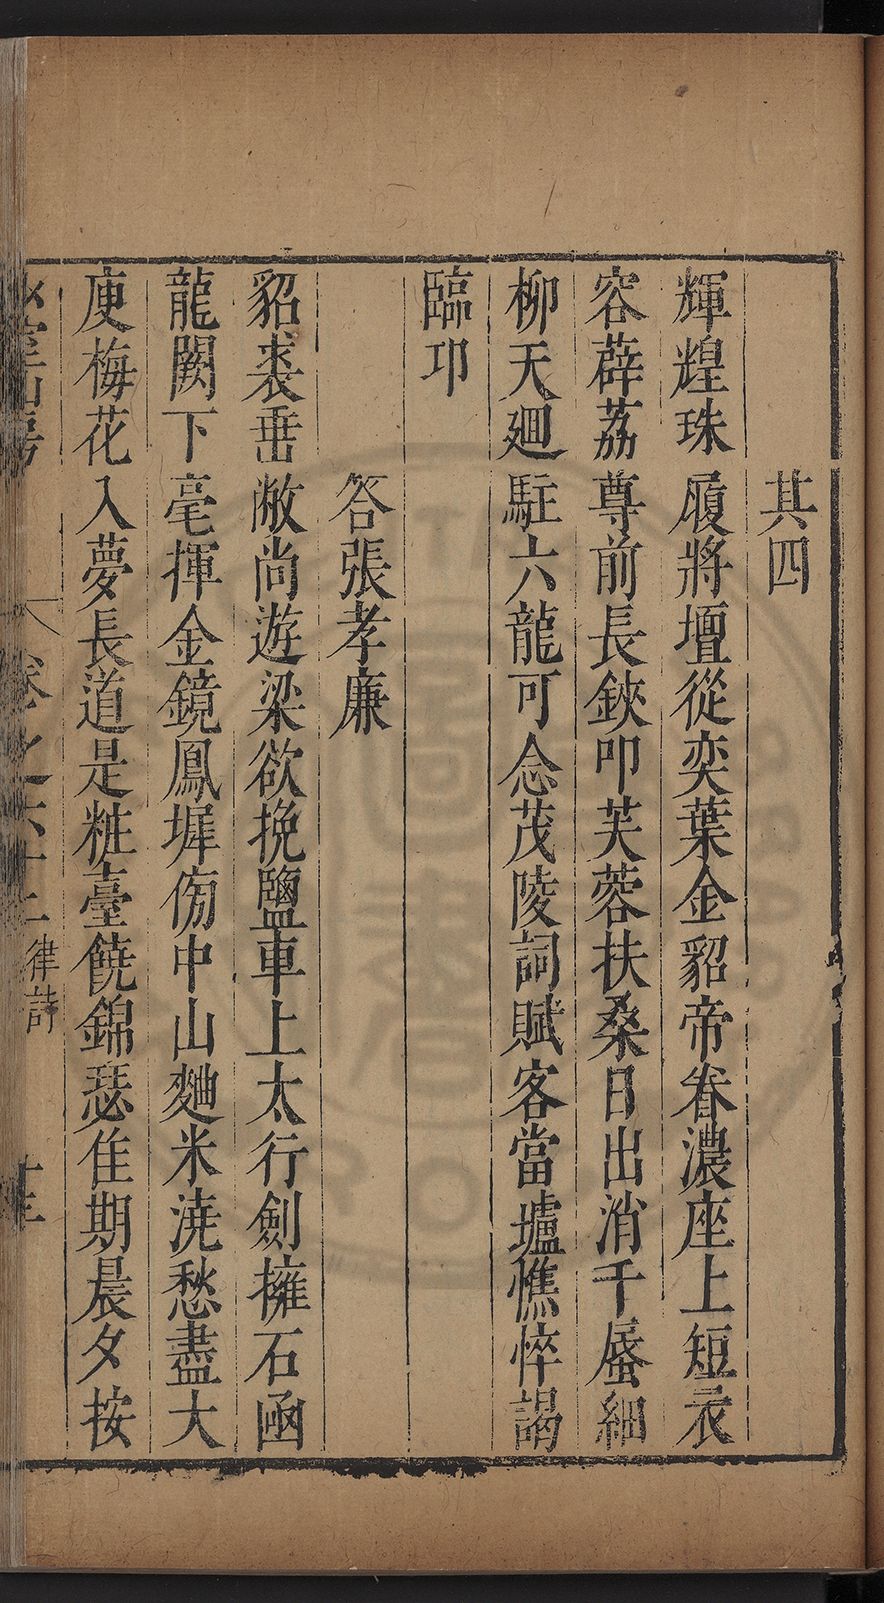 其四
輝煌珠履將壇從奕葉金貂帝眷濃座上短衣
容薜荔尊前長鋏叩芙蓉扶桑日出消千蜃細
柳天廻駐六龍可念茂陵詞賦客當壚憔悴謁
臨邛
答張孝廉
貂裘垂敝尚遊梁欲挽鹽車上太行劍擁石函
龍闕下毫揮金鏡鳳墀傍中山麯米澆愁盡大
庾梅花入夢長道是粧臺饒錦瑟佳期晨夕按
卷之六十二 律詩